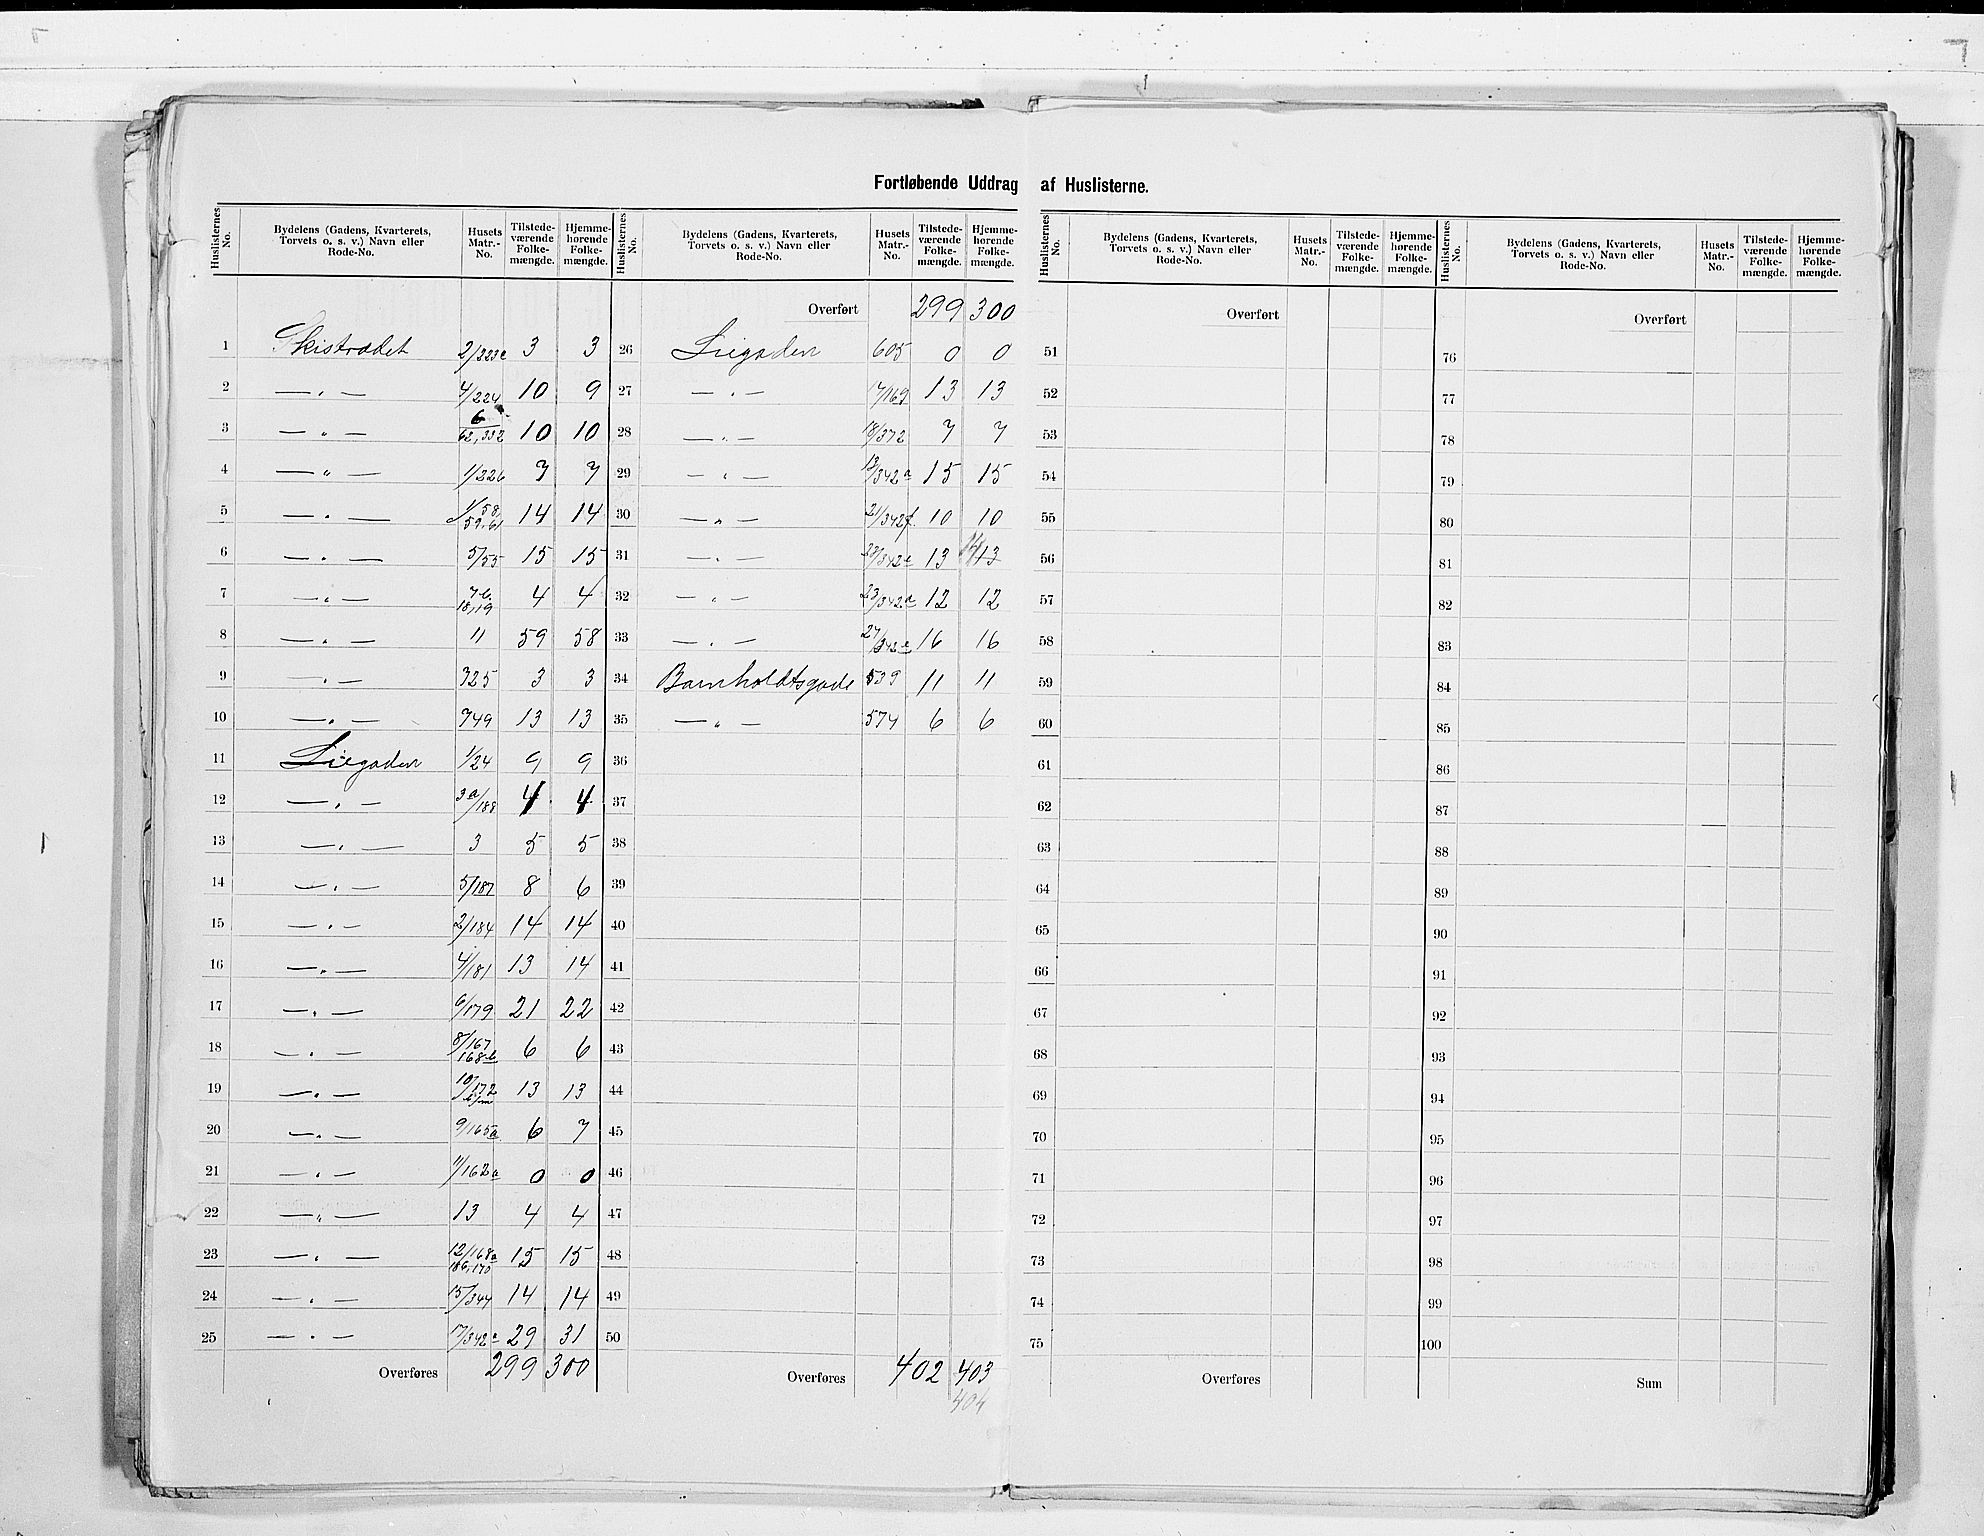 Fortløbende Uddrag af Huslisterne.
Huslisternes No. | Bydelens (Gadens, Kvarterets, Torvets o. s. v.) Navn eller Rode-No. | Husets Matr.-No. | Tilstedeværende Folkemængde. | Hjemmehørende Folkemængde.
1 Skistrædet 2/223c 3 3
2 — " — 4/224 10 9
3 — " — 6/62,332 10 10
4 — " — 1/226 7 7
5 — " — 1/58, 59, 61 14 14
6 — " — 5/55 15 15
7 — " — 7 b. 18,19 4 4
8 — " — 11 59 58
9 — " — 325 3 3
10 — " — 749 13 13
11 Liegaden 1/24 9 9
12 — " — 3a/188 4 4
13 — " — 3 5 5
14 — " — 5/187 8 6
15 — " — 2/184 14 14
16 — " — 4/181 13 14
17 — " — 6/179 21 22
18 — " — 8/167 168b 6 6
19 — " — 10/172 13 13
20 — " — 9/165a 6 7
21 — " — 11/162a 0 0
22 — " — 13 4 4
23 — " — 12/168a 186,170 15 15
24 — " — 15/344 14 14
25 — " — 17/342a 29 31
Overføres 299 300
Huslisternes No. | Bydelens (Gadens, Kvarterets, Torvets o. s. v.) Navn eller Rode-No. | Husets Matr.-No. | Tilstedeværende Folkemængde. | Hjemmehørende Folkemængde.
Overført 299 300
26 Liegaden 605 0 0
27 — " — 17/169 13 13
28 — " — 18/372 7 7
29 — " — 19/342a 15 15
30 — " — 21/342f. 10 10
31 — " — 13 14 13
32 — " — 23/342a 12 12
33 — " — 27/342e 16 16
34 Bornholdtsgade 539 11 11
35 — " — 574 6 6
36
37
38
39
40
41
42
43
44
45
46
47
48
49
50
Overføres 402 403
404
Huslisternes No. | Bydelens (Gadens, Kvarterets, Torvets o. s. v.) Navn eller Rode-No. | Husets Matr.-No. | Tilstedeværende Folkemængde. | Hjemmehørende Folkemængde.
Overført
51
52
53
54
55
56
57
58
59
60
61
62
63
64
65
66
67
68
69
70
71
72
73
74
75
Overføres
Huslisternes No. | Bydelens (Gadens, Kvarterets, Torvets o. s. v.) Navn eller Rode-No. | Husets Matr.-No. | Tilstedeværende Folkemængde. | Hjemmehørende Folkemængde.
Overført
76
77
78
79
80
81
82
83
84
85
86
87
88
89
90
91
92
93
94
95
96
97
98
99
100
Sum